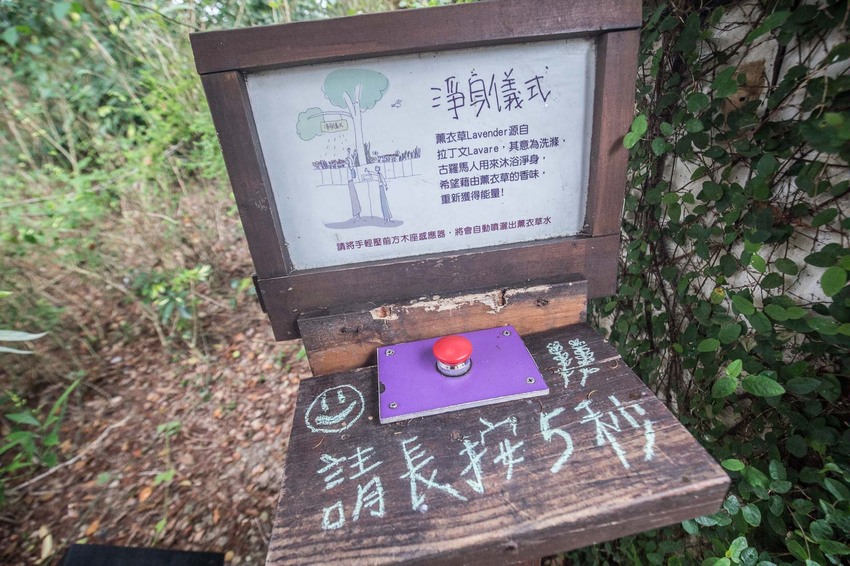 淨身儀式
淨身儀式
薰衣草Lavender源自
拉丁文Lavare，其意為洗滌，
古羅馬人用來沐浴淨身，
希望藉由薰衣草的香味，
重新獲得能量!
請將手輕壓前方木座感應器，將會自動噴灑出薰衣草水
請長按5秒